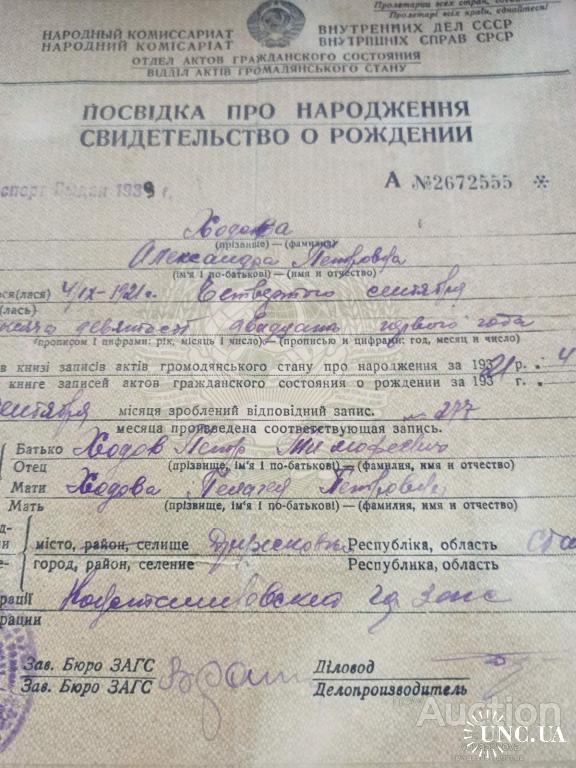 Пролетарии всех стран,
Пролетарі всіх країн, єднайтеся!
НАРОДНЫЙ КОМИССАРИАТ ВНУТРЕННИХ ДЕЛ СССР
НАРОДНИЙ КОМІСАРІАТ ВНУТРІШНІХ СПРАВ СРСР
ОТДЕЛ АКТОВ ГРАЖДАНСКОГО СОСТОЯНИЯ
ВІДДІЛ АКТІВ ГРОМАДЯНСЬКОГО СТАНУ
ПОСВІДКА ПРО НАРОДЖЕННЯ
СВИДЕТЕЛЬСТВО О РОЖДЕНИИ
спорт выдан 1939 г.
А №2672555 *
Ходова
(прізвище) — (фамилия)
Александра Петровна
(ім'я і по-батькові) — (имя и отчество)
ося(лася) 4/IX-1921 г. Четвертого сентября
(лась)
тысяча девятьсот двадцать первого года
(прописом і цифрами: рік, місяць і число) — (прописью и цифрами: год, месяц и число)
в книзі записів актів громодянського стану про народження за 193 21 р. 4
книге записей актов гражданского состояния о рождении за 193 г.
сентября місяця зроблений відповідний запис. № 277
месяца произведена соответствующая запись.
Батько Ходов Петр Тимофеевич
Отец (прізвище, ім'я і по-батькові) — (фамилия, имя и отчество)
Мати Ходова Пелагея Петровна
Мать (прізвище, ім'я і по-батькові) — (фамилия, имя и отчество)
місто, район, селище Республіка, область Ста
город, район, селение Республика, область
рації загс
рации
Зав. Бюро ЗАГС Діловод
Зав. Бюро ЗАГС Делопроизводитель
Auction
UNC.UA